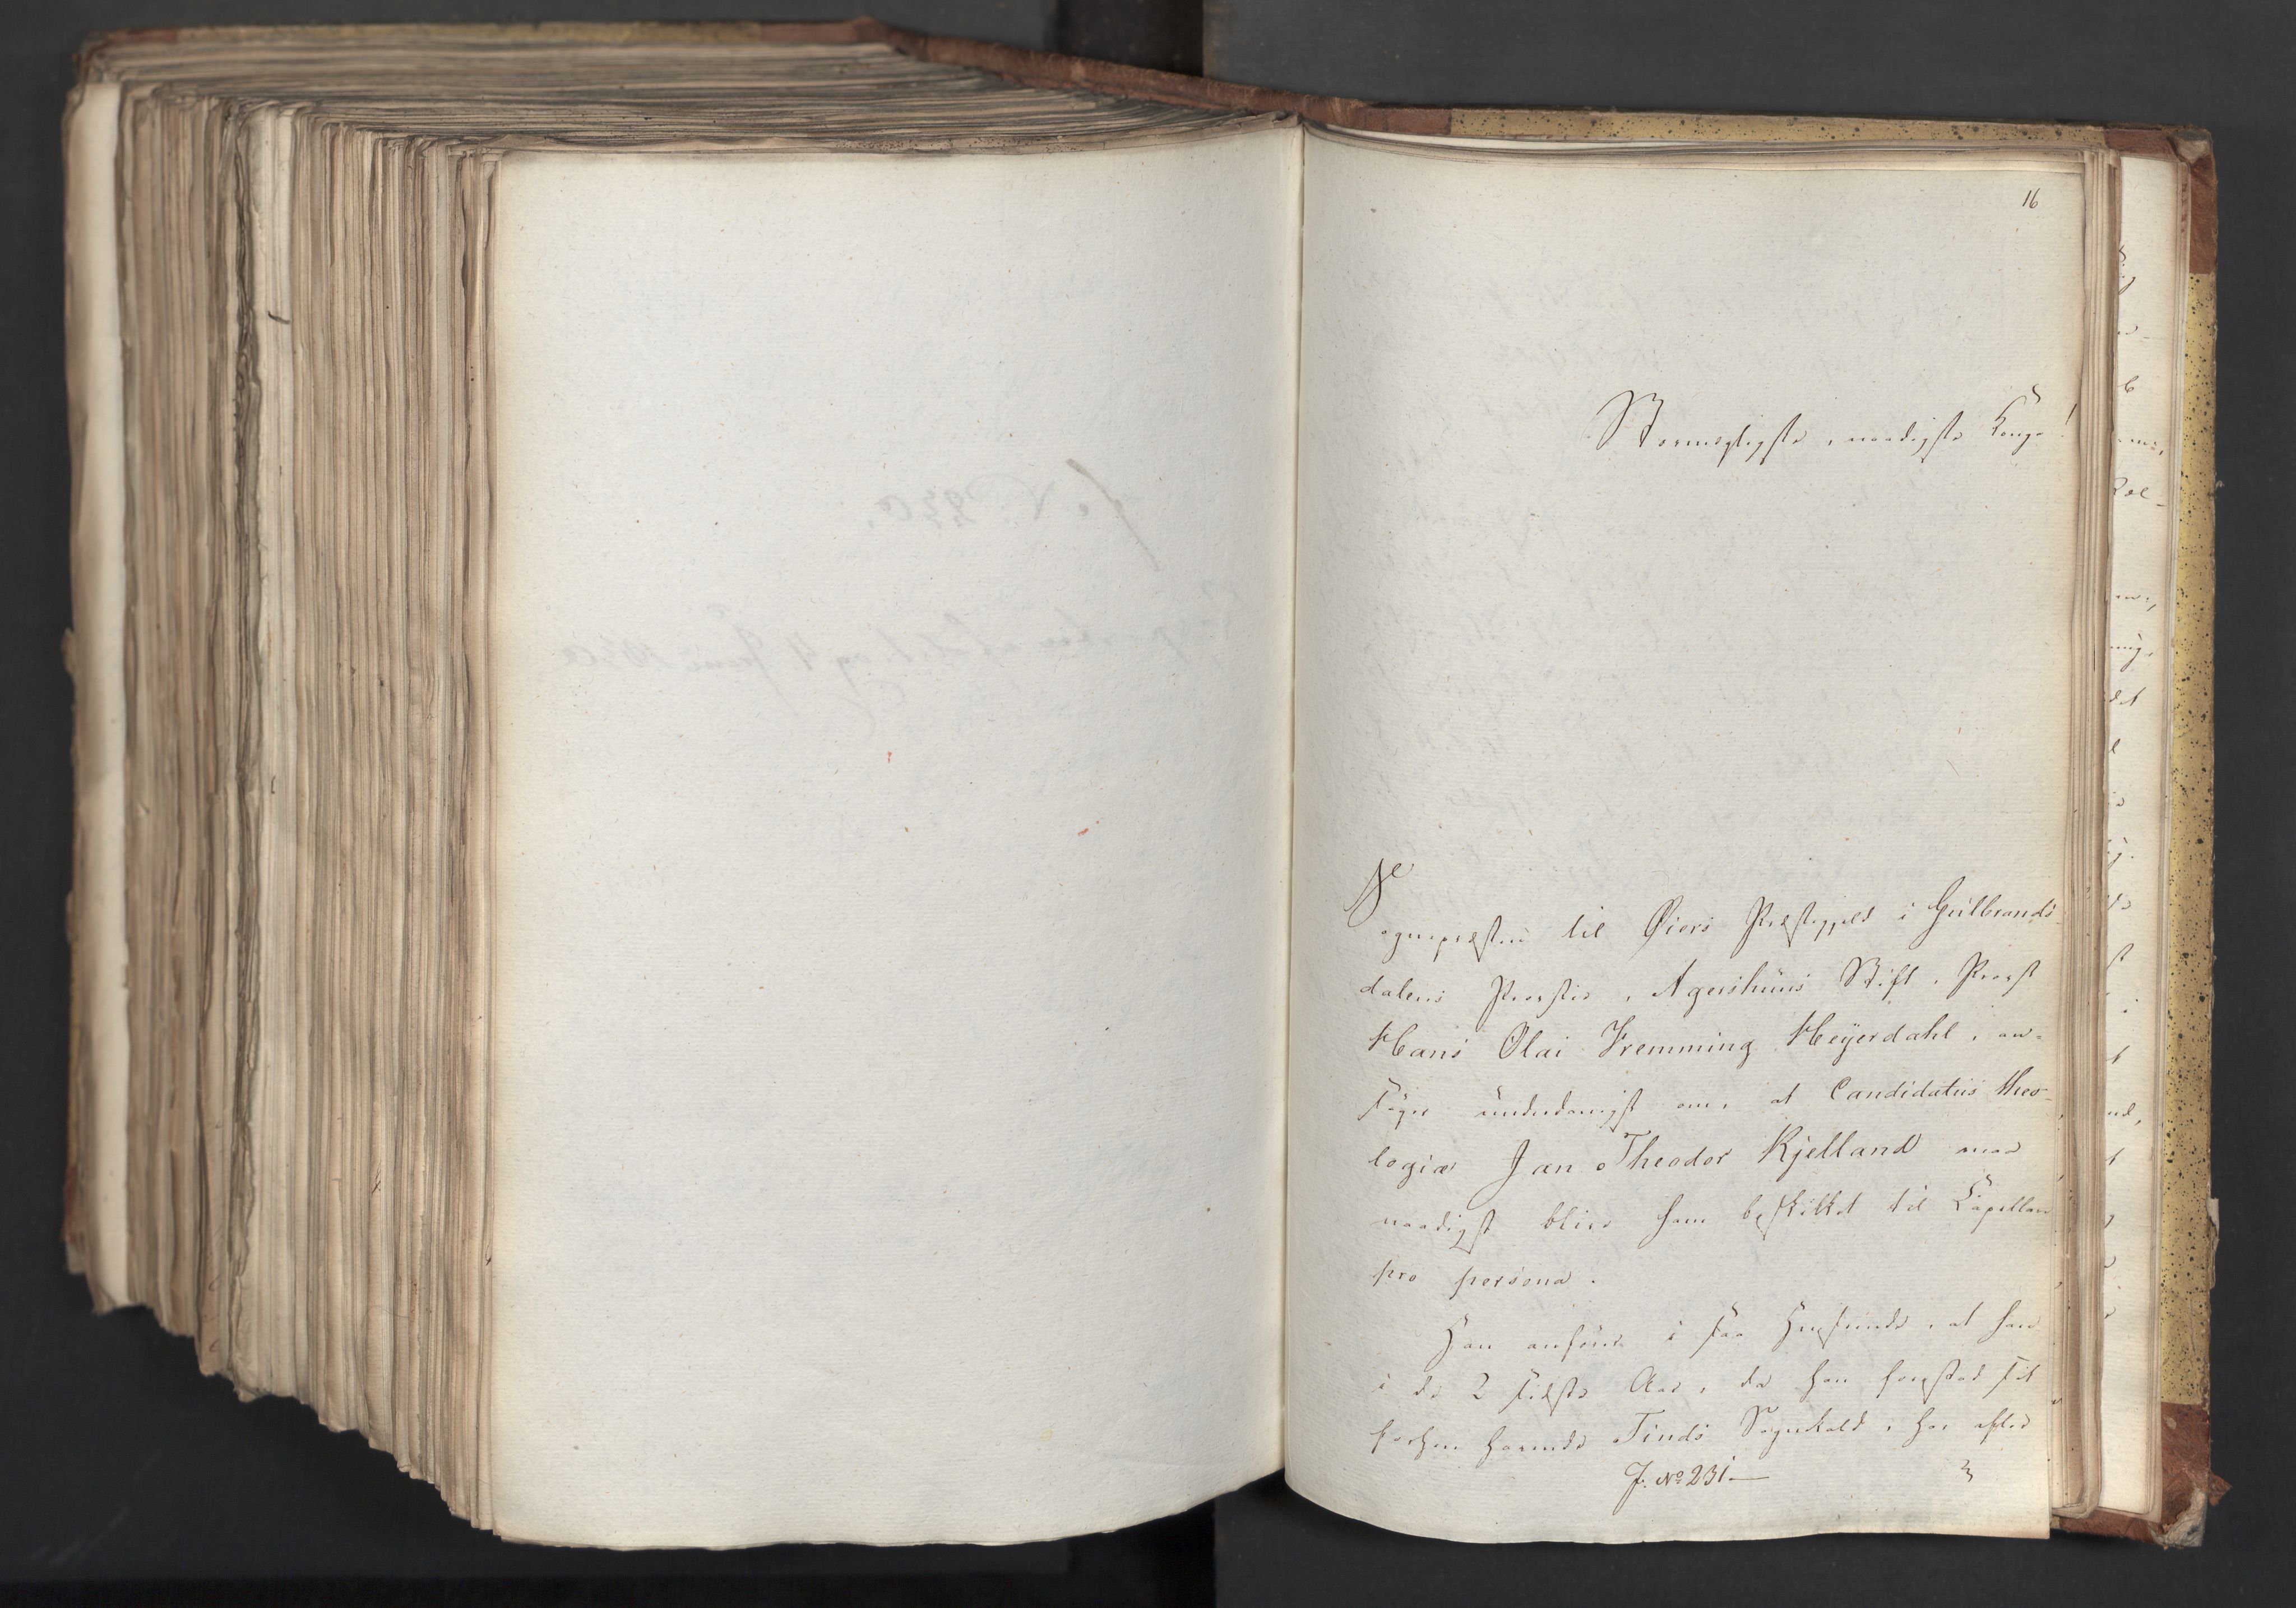 16
Stormægtigste, naadigste Konge!
Sognepræsten til Øiers Præstegjeld i Gulbrands-
dalens Provstie, Agershuus Stift, Provst
Hans Olai Fremming Heÿerdahl, an-
søger underdanigst om, at Candidatus theo-
logiæ Jan Theodor Kjelland maa
naadigst blive ham beskikket til Capellan
pro persona.
Han anfører i saa Henseende, at han
i de 2 sidste Aar, da han forestod sit
forhen havende Tinds Sognekald, har efter
J. No 231